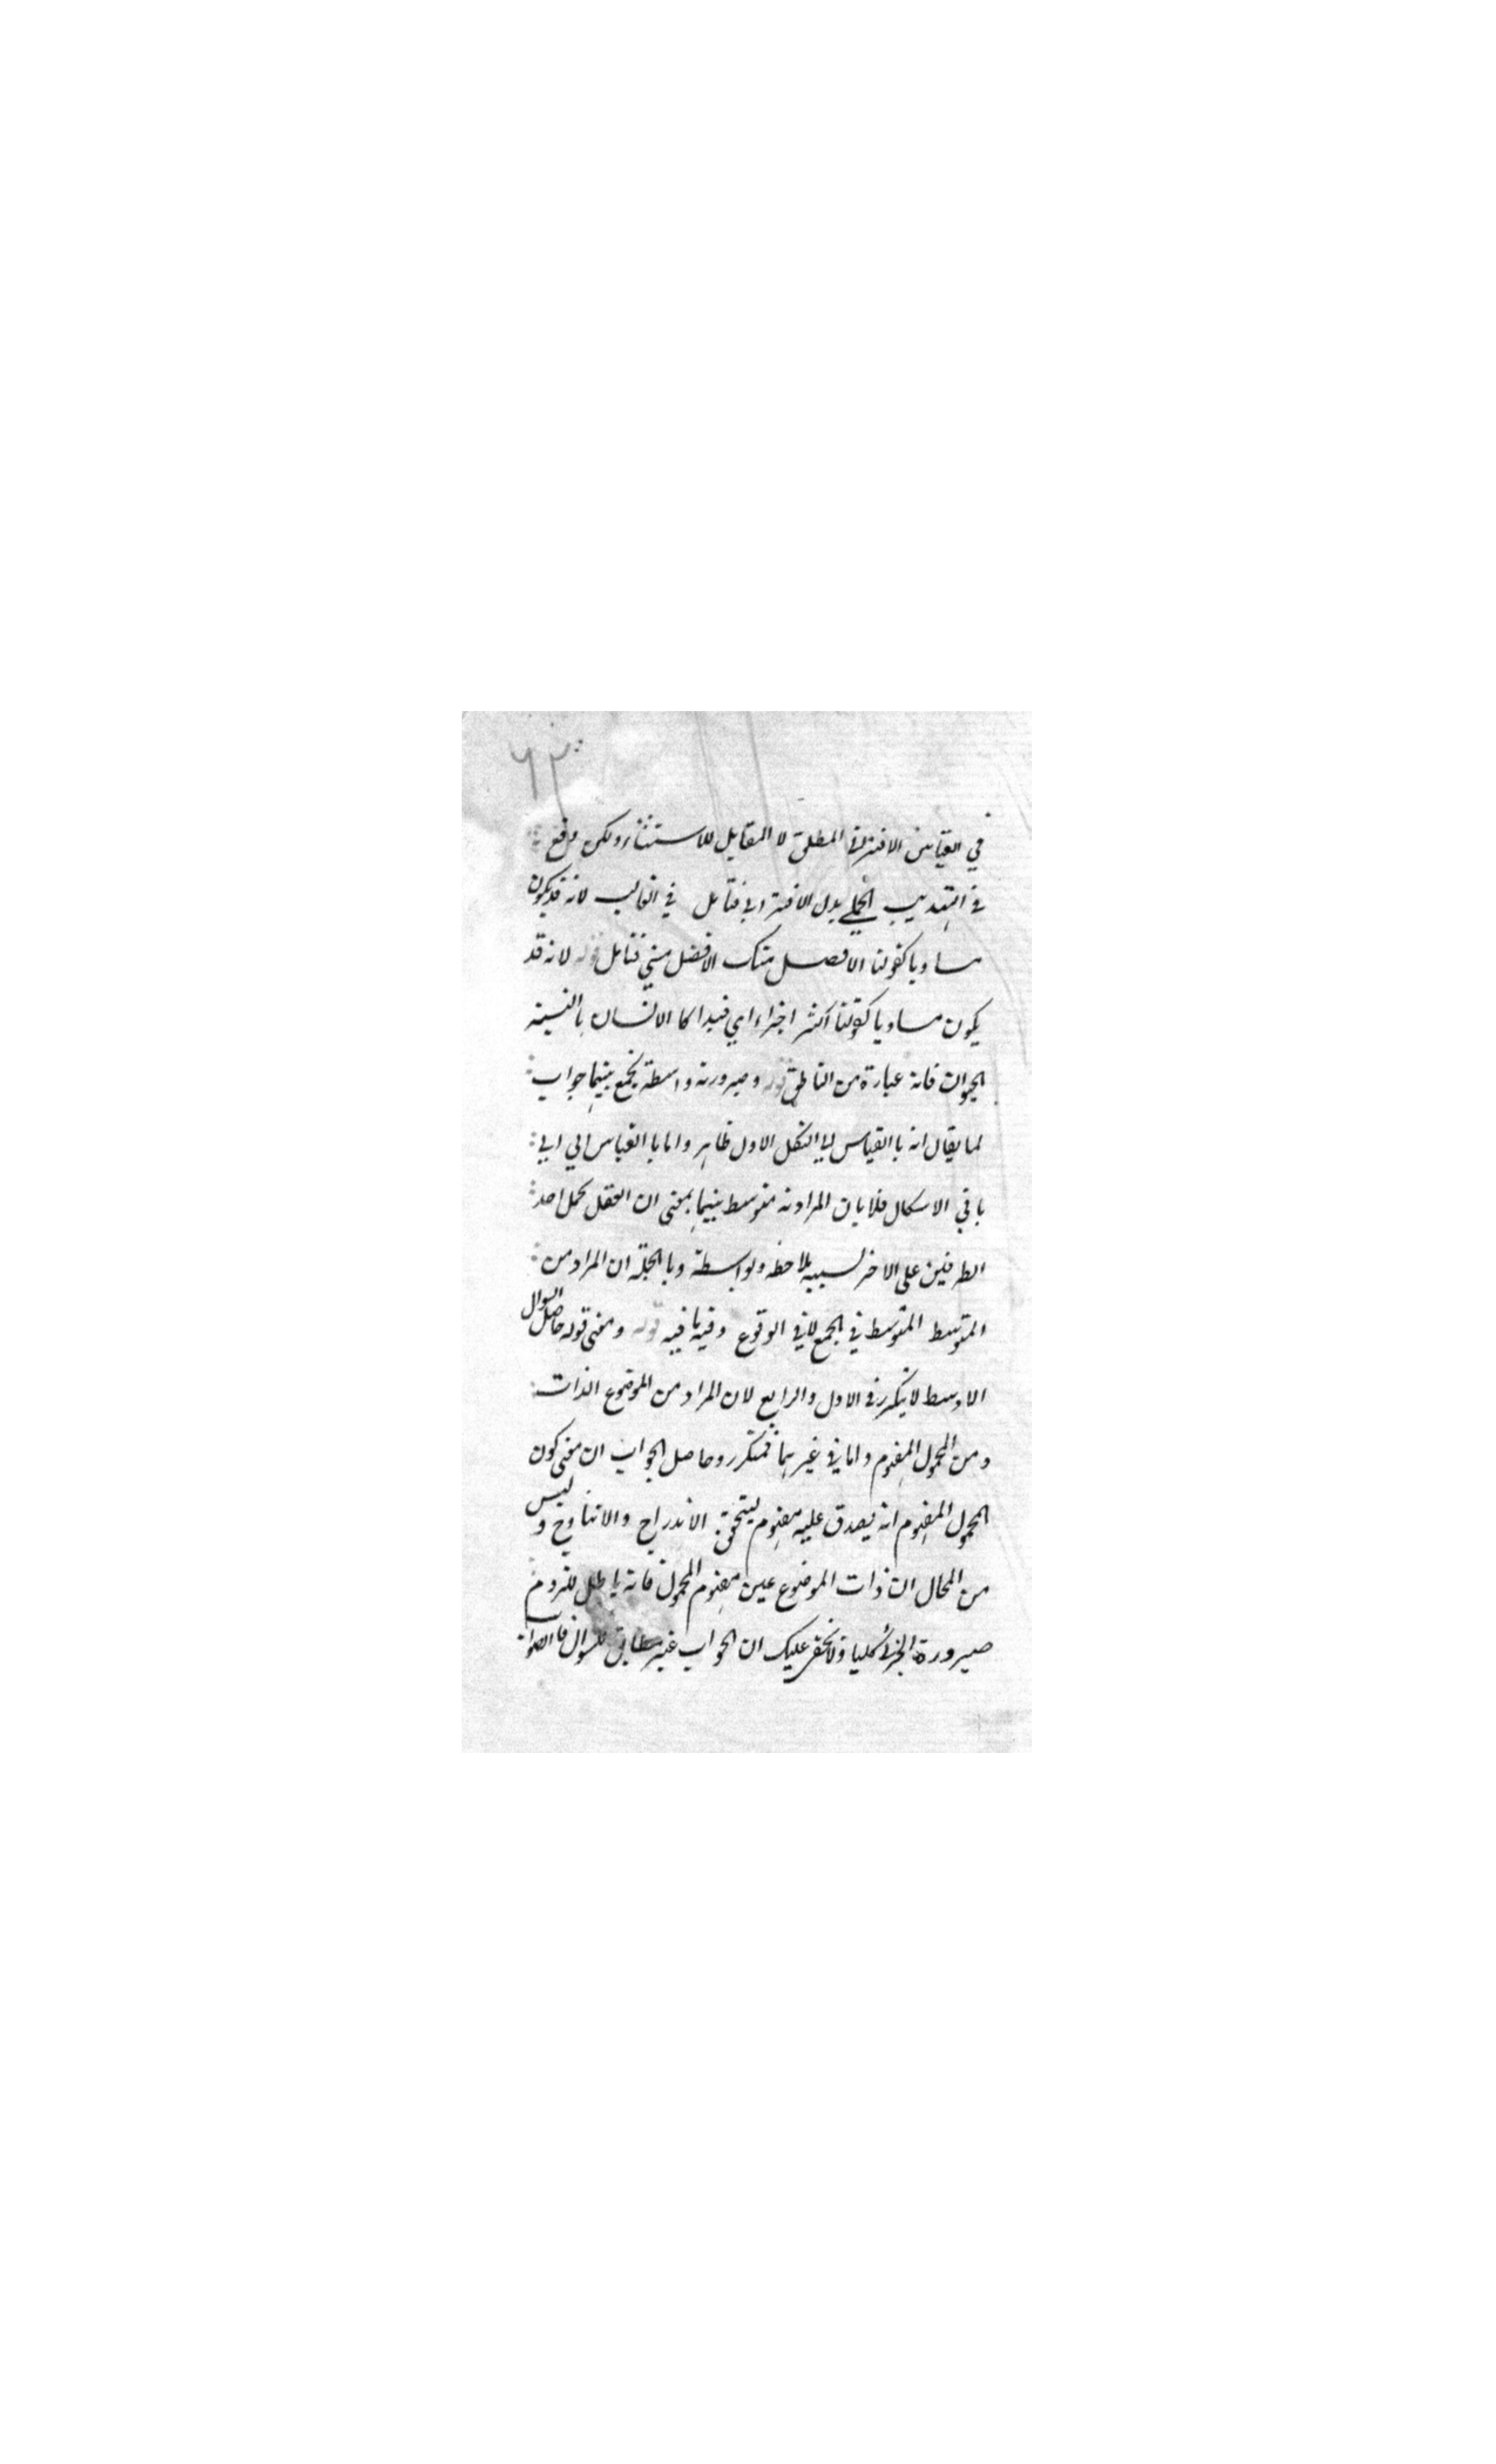 ٦٢
في القياس الاقتراني المطلق لا المقابل للاستثناء ولكن وقع
في التهذيب الحملي بدل الاقتراني فتأمل في الغالب لانه قد يكون
مساويا كقولنا الافضل منك الافضل مني فتامل قوله لانه قد
يكون مساويا كقولنا اكثر اجزاء اي قيدا كا الانسان بالنسبة
الحيوان فانه عبارة من الناطق قوله وصيرورته واسطة يجمع بينهما جواب
لما يقال انه با القياس الى الشكل الاول ظاهر واما با القياس الى
باقي الاشكال فلا بان المراد نه متوسط بينهما بمعنى ان العقل يحمل احد
الطرفين على الاخر لسببه بلاحظه وبواسطة وبا الجملة ان المراد من
المتوسط المتوسط في الجمع لا في الوقوع وفيه ما فيه قوله ومعنى قوله حاصل السوال
الاوسط لا يتكرر في الاول والرابع لان المراد من الموضوع الذات
ومن المحمول المفهوم واما في غيرهما فمتكرر وحاصل الجواب ان معنى كون
المحمول المفهوم انه يصدق عليه مفهوم ليتحقق الاندراج والانتاج وليس
من المحال ان ذات الموضوع عين مفهوم المحمول فانه باطل للزوم
صيرورة الجزئي كليا ولا يخفى عليك ان الجواب غير مطابق للسوال فا الصواب